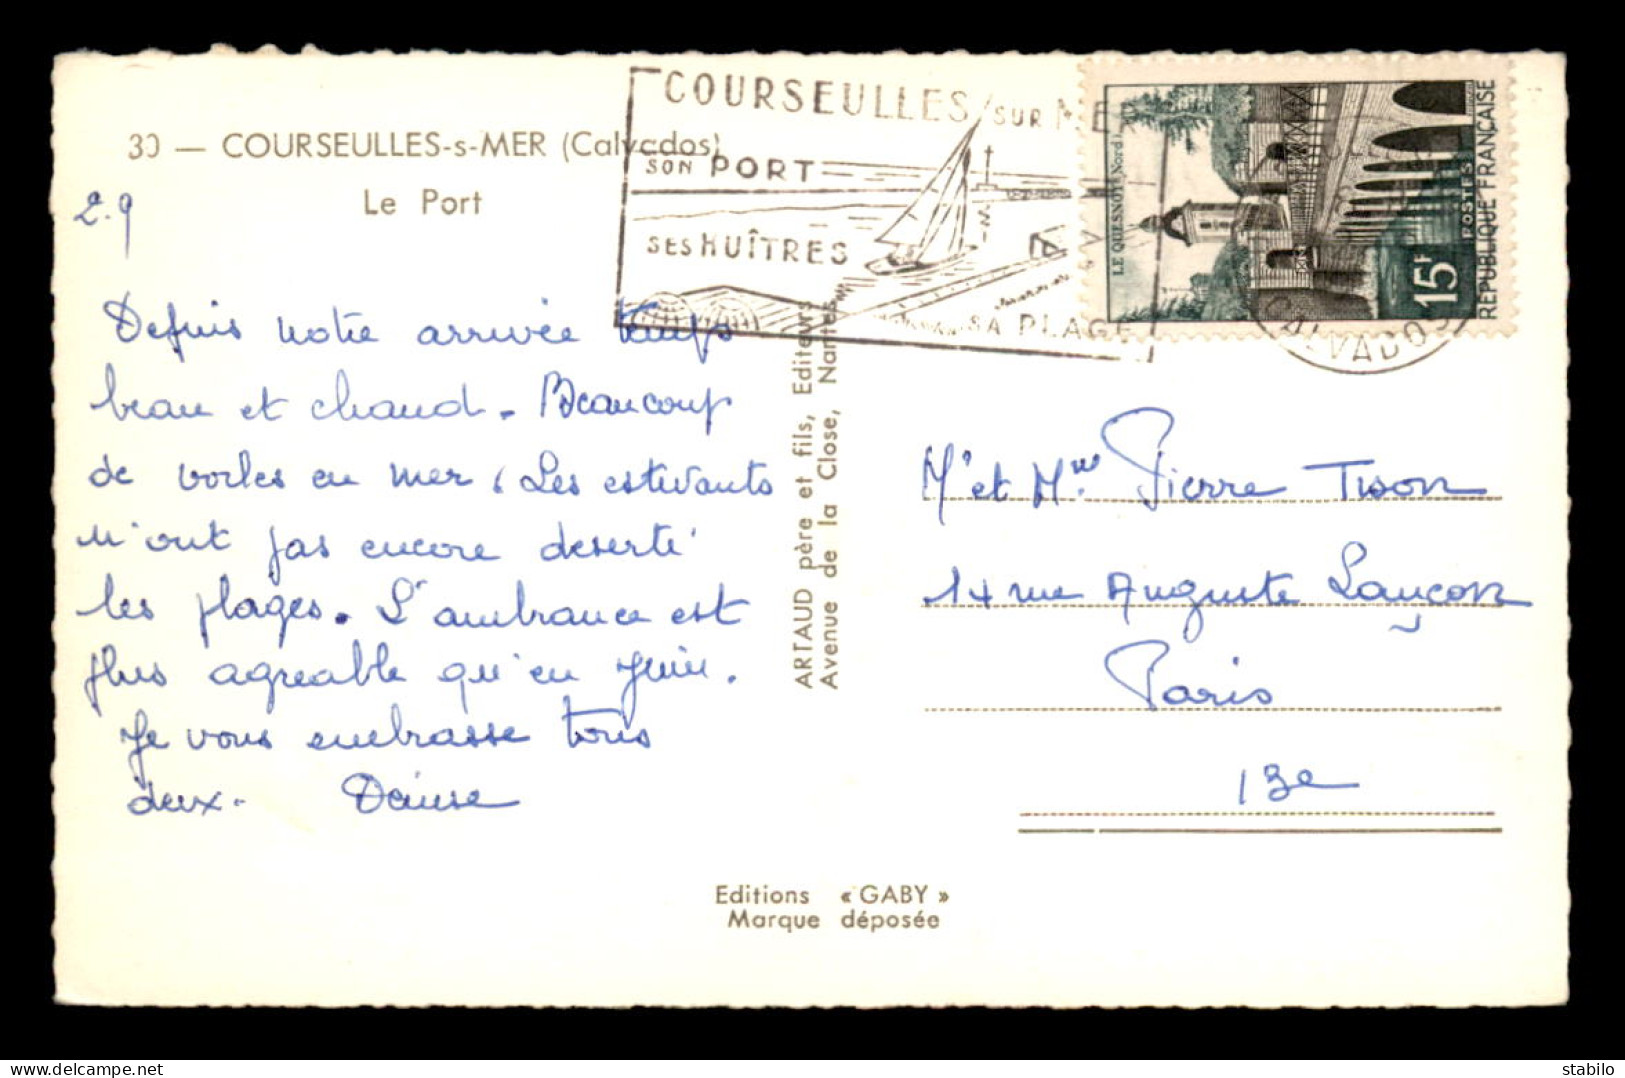 30 — COURSEULLES-s-MER (Calvados)
Le Port
2.9
Depuis notre arrivée temps
beau et chaud. Beaucoup
de voiles en mer. Les estivants
n'ont pas encore deserté
les plages. L'ambiance est
plus agreable qu'en Juin.
Je vous embrasse tous
deux. Denise
COURSEULLES SUR MER
SON PORT
SES HUÎTRES
SA PLAGE
CALVADOS
LE QUESNOY (Nord)
15F
POSTES
REPUBLIQUE FRANÇAISE
ARTAUD père et fils, Editeurs
Avenue de la Close, Nantes
Mr et Mme Pierre Tison
14 rue Auguste Lançon
Paris
13e
Editions « GABY »
Marque déposée
delcampe.net
stabilo